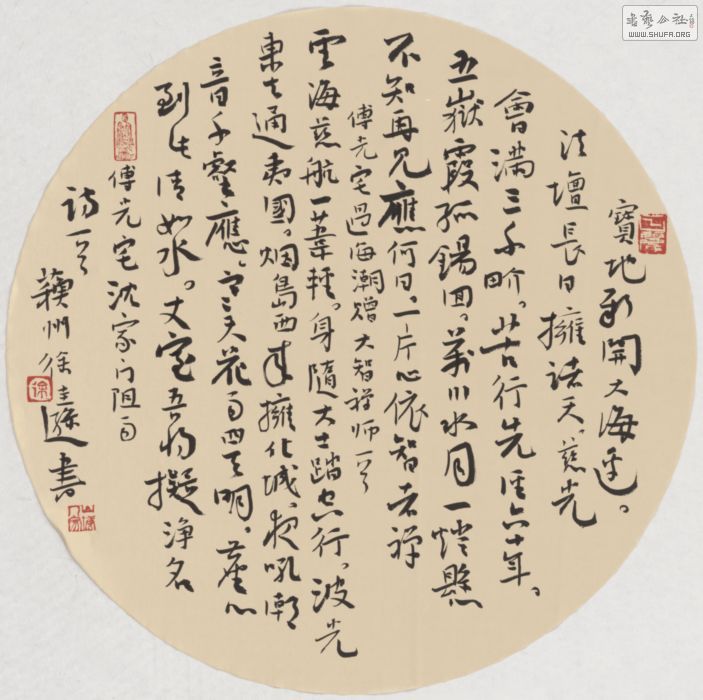 寶地新開大海邊。
法壇長日擁諸天。慈光
會滿三千畍。苦行先六十年。
五嶽霞孤錫回。萬川水月一燈懸
不知再見應何日。一片心依智者禪
傅光宅過海潮贈大智禪師一首
雲海慈航一葦輕。身隨大士踏空行。波光
東去通夷國。烟島西來擁化城。夜吼潮
音千壑應、天花雨四天明。塵心
到此清如水。丈室吾將擬淨名
傅光宅沈家门阻雨
詩一首
蘇州徐書
徐
書藝公社
WWW.SHUFA.ORG